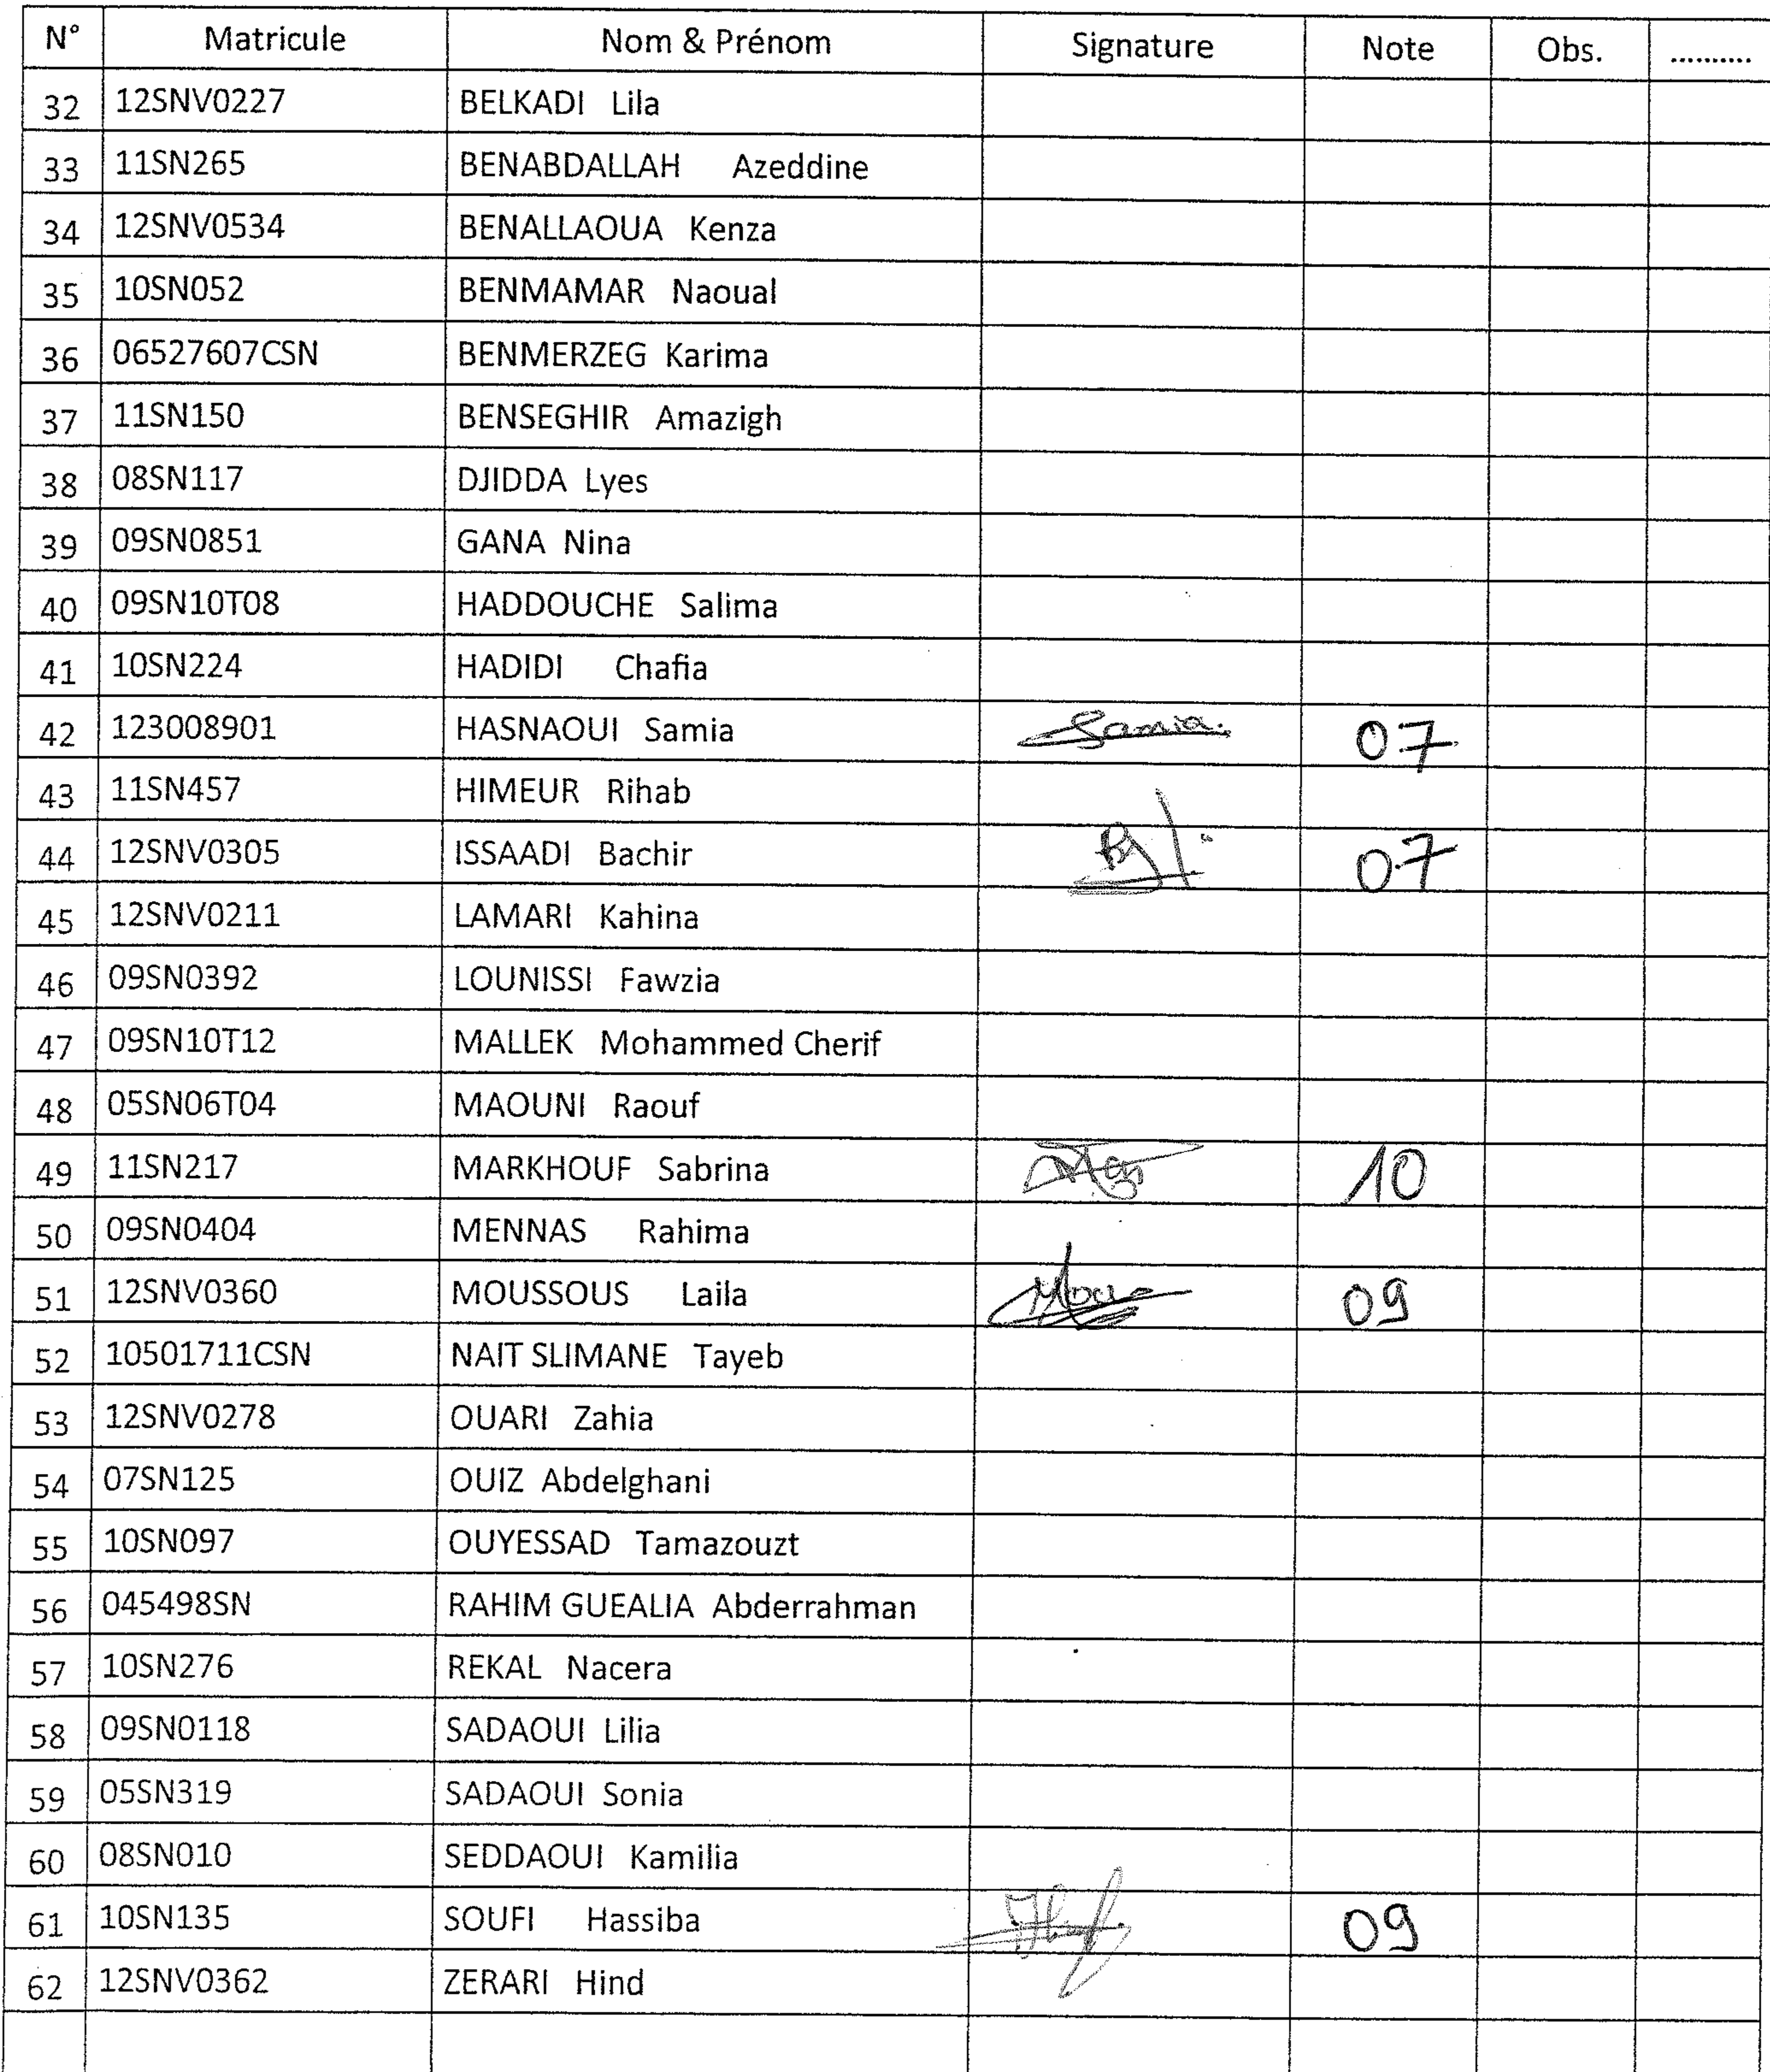 N° Matricule Nom & Prénom Signature Note Obs. ..........
32 12SNV0227 BELKADI Lila
33 11SN265 BENABDALLAH Azeddine
34 12SNV0534 BENALLAOUA Kenza
35 10SN052 BENMAMAR Naoual
36 06527607CSN BENMERZEG Karima
37 11SN150 BENSEGHIR Amazigh
38 08SN117 DJIDDA Lyes
39 09SN0851 GANA Nina
40 09SN10T08 HADDOUCHE Salima
41 10SN224 HADIDI Chafia
42 123008901 HASNAOUI Samia Samia. 07
43 11SN457 HIMEUR Rihab
44 12SNV0305 ISSAADI Bachir 07
45 12SNV0211 LAMARI Kahina
46 09SN0392 LOUNISSI Fawzia
47 09SN10T12 MALLEK Mohammed Cherif
48 05SN06T04 MAOUNI Raouf
49 11SN217 MARKHOUF Sabrina 10
50 09SN0404 MENNAS Rahima
51 12SNV0360 MOUSSOUS Laila 09
52 10501711CSN NAIT SLIMANE Tayeb
53 12SNV0278 OUARI Zahia
54 07SN125 OUIZ Abdelghani
55 10SN097 OUYESSAD Tamazouzt
56 045498SN RAHIM GUEALIA Abderrahman
57 10SN276 REKAL Nacera
58 09SN0118 SADAOUI Lilia
59 05SN319 SADAOUI Sonia
60 08SN010 SEDDAOUI Kamilia
61 10SN135 SOUFI Hassiba 09
62 12SNV0362 ZERARI Hind